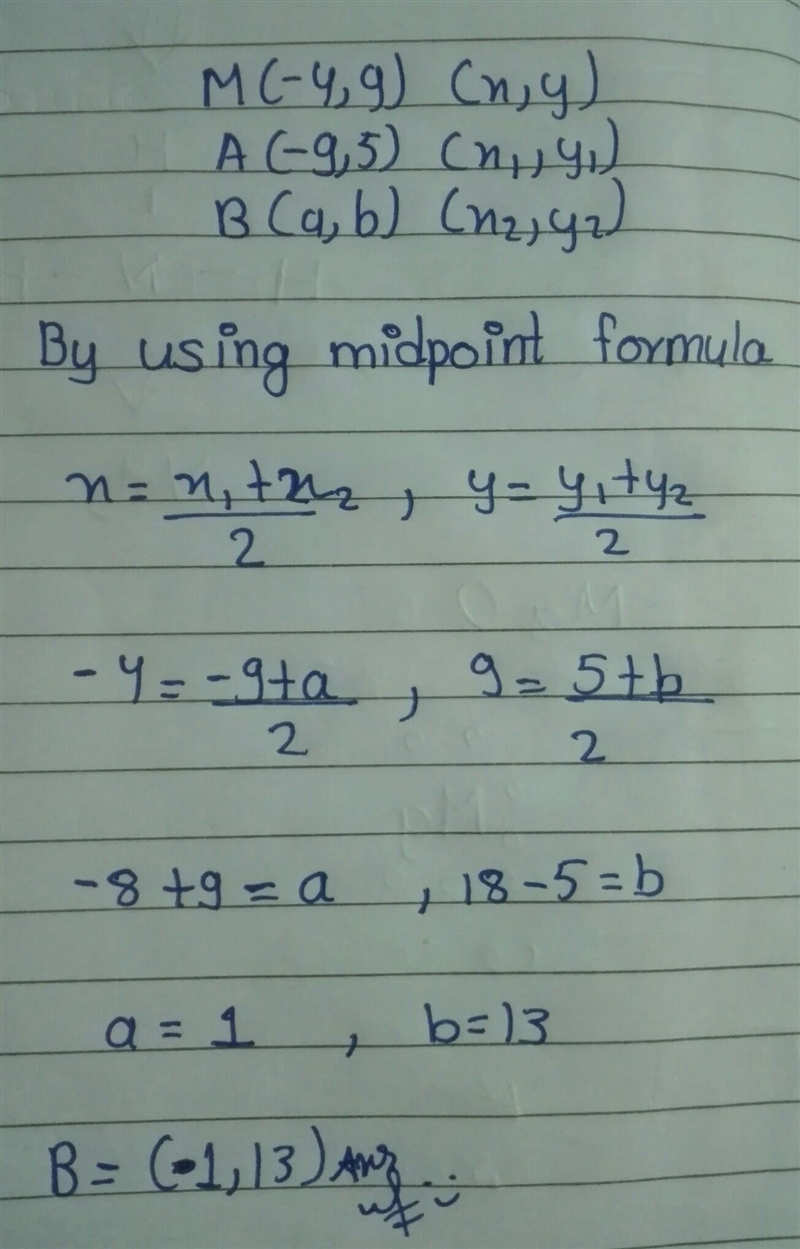 M(-4,9) (x,y)
A(-9,5) (x₁,y₁)
B(a,b) (x₂,y₂)
By using midpoint formula
x = x₁+x₂/2 , y = y₁+y₂/2
-4 = -9+a/2 , 9 = 5+b/2
-8+9=a , 18-5=b
a = 1 , b=13
B = (-1,13) Ans